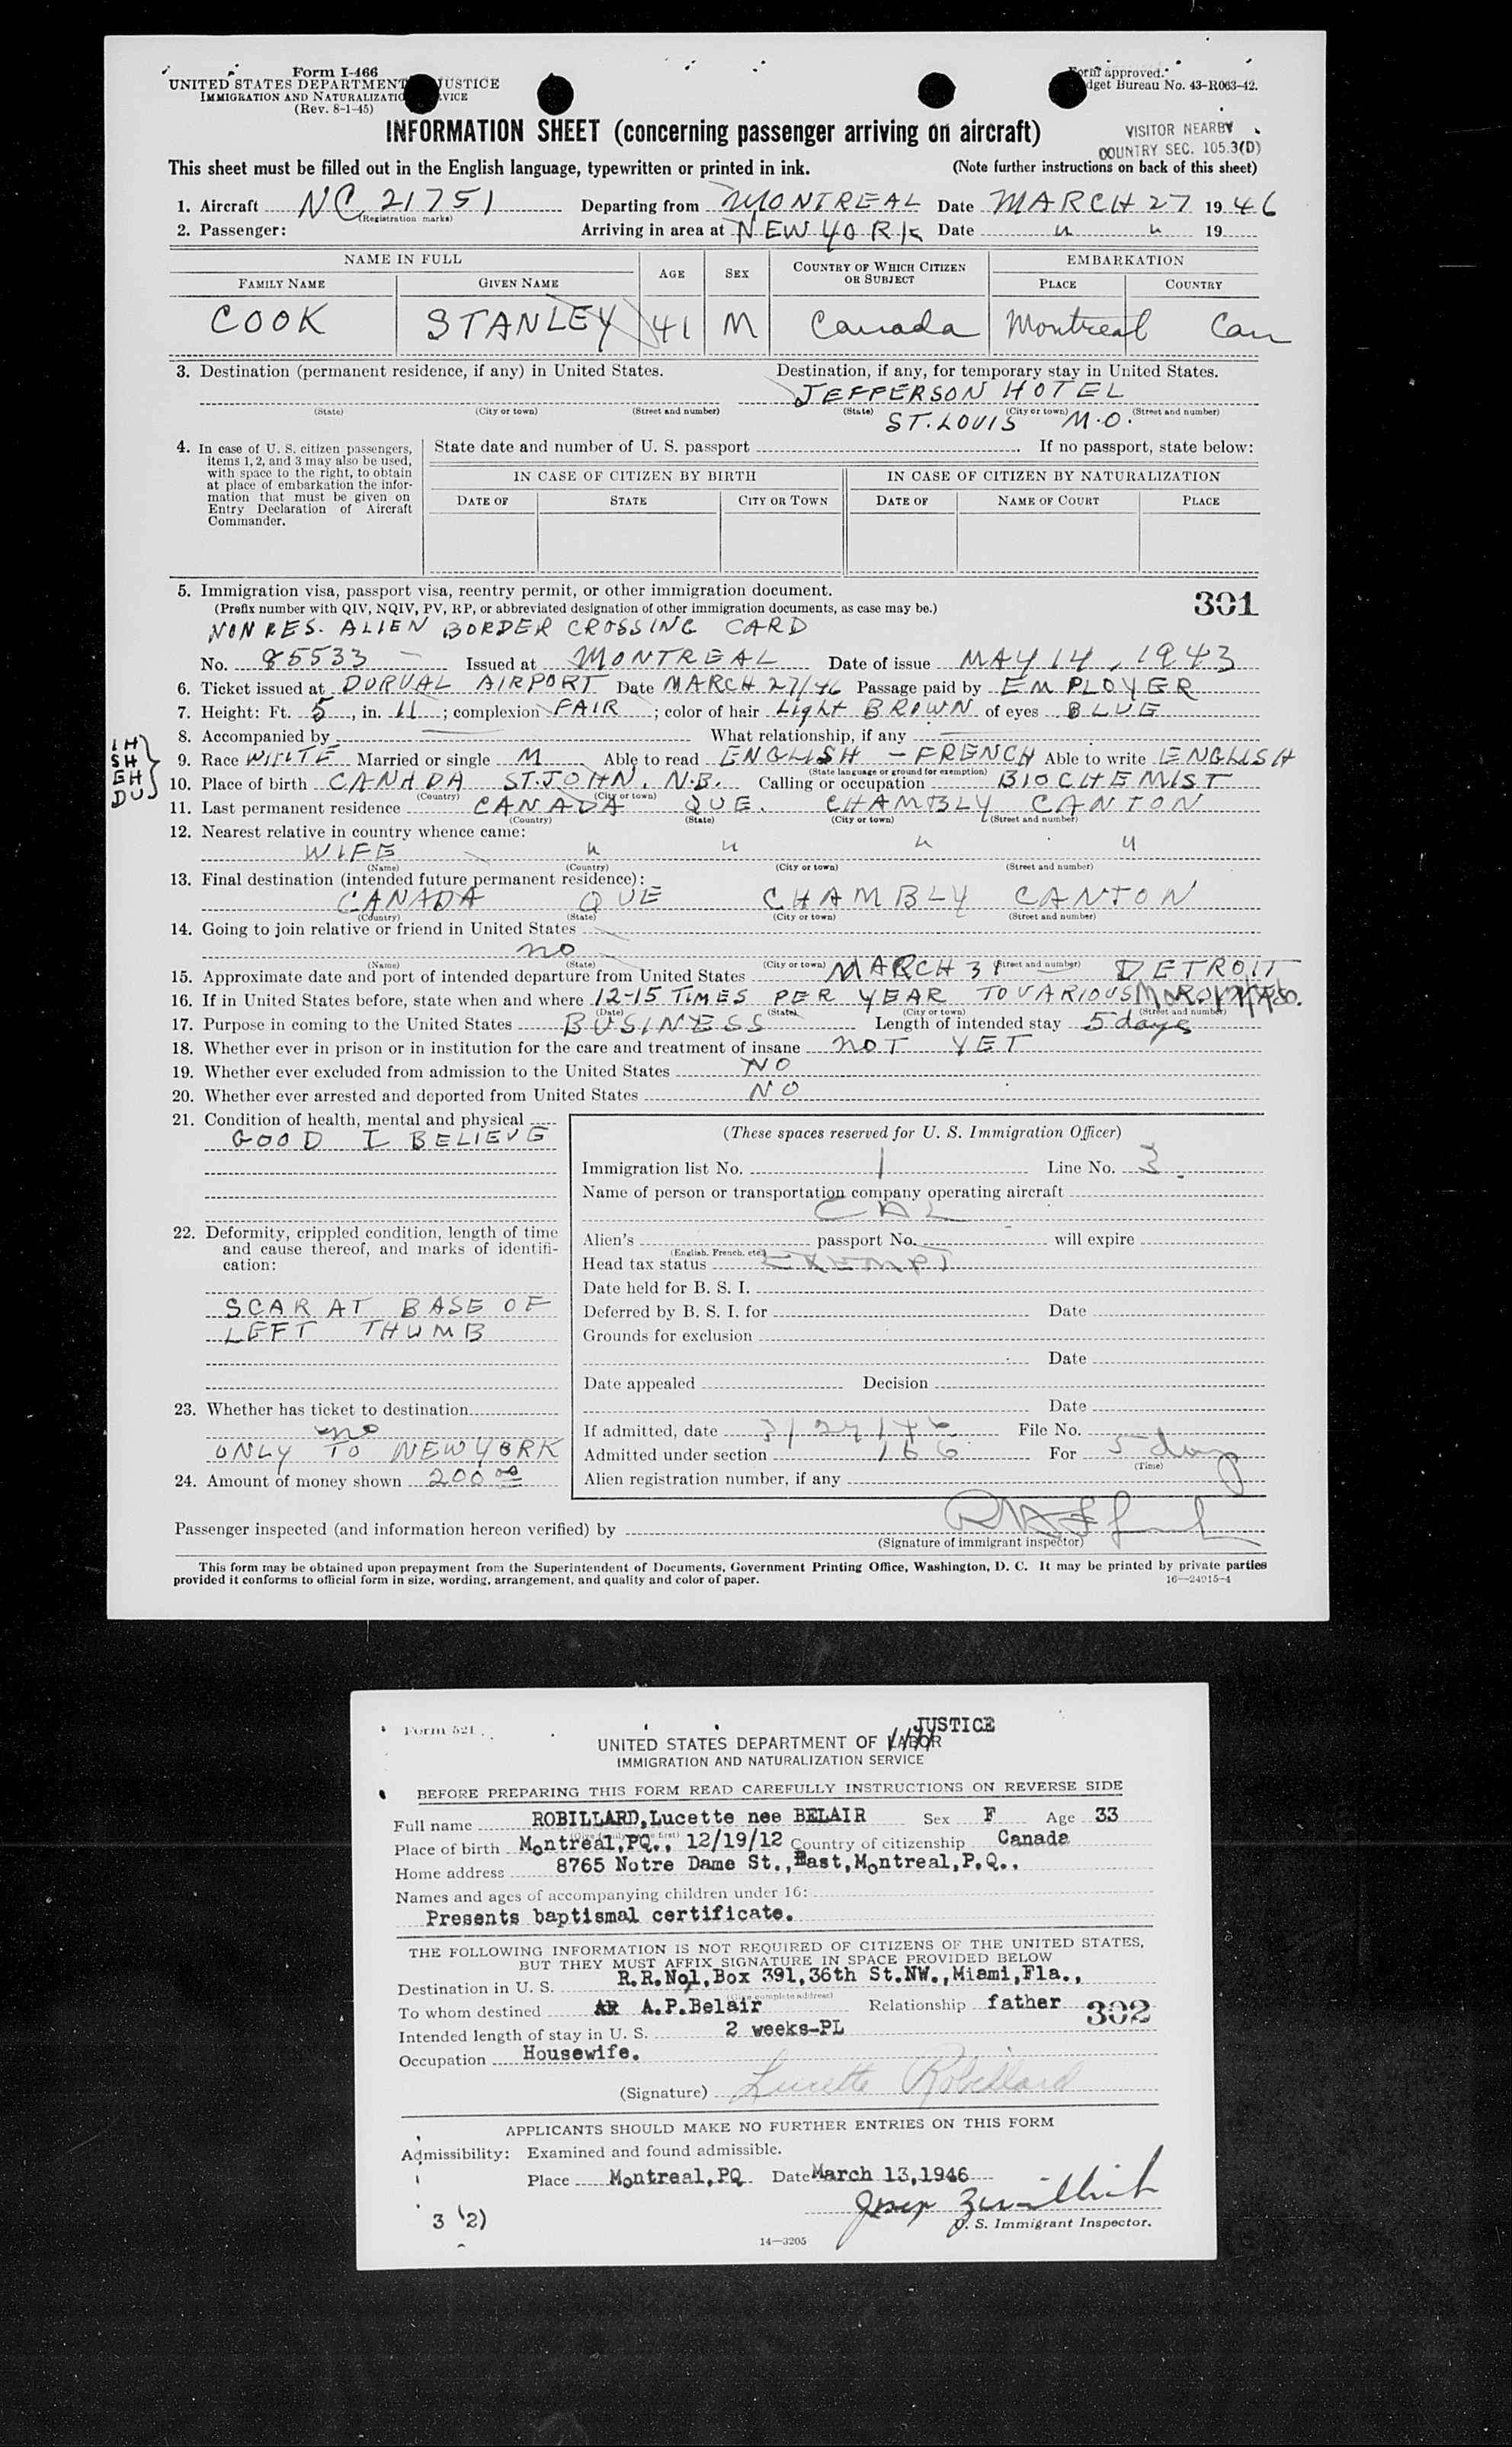 Form I-466
UNITED STATES DEPARTMENT JUSTICE
IMMIGRATION AND NATURALIZATION SERVICE
(Rev. 8-1-45)
Form approved.
Budget Bureau No. 43-R063-42.
INFORMATION SHEET (concerning passenger arriving on aircraft)
VISITOR NEARBY
COUNTRY SEC. 105.3(D)
This sheet must be filled out in the English language, typewritten or printed in ink. (Note further instructions on back of this sheet)
1. Aircraft NC 21751 Departing from MONTREAL Date MARCH 27 1946
(Registration marks)
2. Passenger: Arriving in area at NEW YORK Date " " 19
NAME IN FULL AGE SEX COUNTRY OF WHICH CITIZEN OR SUBJECT EMBARKATION
FAMILY NAME GIVEN NAME PLACE COUNTRY
COOK STANLEY 41 M Canada Montreal Can
3. Destination (permanent residence, if any) in United States. Destination, if any, for temporary stay in United States.
JEFFERSON HOTEL
(State) (City or town) (Street and number) (State) (City or town) (Street and number)
ST. LOUIS M.O.
4. In case of U. S. citizen passengers, items 1, 2, and 3 may also be used, with space to the right, to obtain at place of embarkation the information that must be given on Entry Declaration of Aircraft Commander.
State date and number of U. S. passport If no passport, state below:
IN CASE OF CITIZEN BY BIRTH IN CASE OF CITIZEN BY NATURALIZATION
DATE OF STATE CITY OR TOWN DATE OF NAME OF COURT PLACE
5. Immigration visa, passport visa, reentry permit, or other immigration document.
(Prefix number with QIV, NQIV, PV, RP, or abbreviated designation of other immigration documents, as case may be.)
301
NON RES. ALIEN BORDER CROSSING CARD
No. 85533 Issued at MONTREAL Date of issue MAY 14, 1943
6. Ticket issued at DORVAL AIRPORT Date MARCH 27/46 Passage paid by EMPLOYER
7. Height: Ft. 5, in. 11; complexion FAIR; color of hair Light BROWN of eyes BLUE
8. Accompanied by What relationship, if any
IH
SH
EH
DU
9. Race WHITE Married or single M Able to read ENGLISH - FRENCH Able to write ENGLISH
(State language or ground for exemption)
10. Place of birth CANADA ST. JOHN, N.B. Calling or occupation BIOCHEMIST
(Country) (City or town)
11. Last permanent residence CANADA QUE. CHAMBLY CANTON
(Country) (State) (City or town) (Street and number)
12. Nearest relative in country whence came:
WIFE " " " "
(Name) (Country) (City or town) (Street and number)
13. Final destination (intended future permanent residence):
CANADA QUE CHAMBLY CANTON
(Country) (State) (City or town) (Street and number)
14. Going to join relative or friend in United States
no
(Name) (State) (City or town) (Street and number)
15. Approximate date and port of intended departure from United States MARCH 31 DETROIT
16. If in United States before, state when and where 12-15 TIMES PER YEAR TO VARIOUS
(Date) (State) (City or town) (Street and number)
17. Purpose in coming to the United States BUSINESS Length of intended stay 5 days
18. Whether ever in prison or in institution for the care and treatment of insane NOT YET
19. Whether ever excluded from admission to the United States NO
20. Whether ever arrested and deported from United States NO
21. Condition of health, mental and physical
GOOD I BELIEVE
22. Deformity, crippled condition, length of time and cause thereof, and marks of identification:
SCAR AT BASE OF
LEFT THUMB
23. Whether has ticket to destination
no
ONLY TO NEW YORK
24. Amount of money shown 200 00
(These spaces reserved for U. S. Immigration Officer)
Immigration list No. 1 Line No. 3
Name of person or transportation company operating aircraft
CAL
Alien's passport No. will expire
(English, French, etc.)
Head tax status EXEMPT
Date held for B. S. I.
Deferred by B. S. I. for Date
Grounds for exclusion
Date
Date appealed Decision
Date
If admitted, date 3/27/46 File No.
Admitted under section 166 For 5 days
(Time)
Alien registration number, if any
Passenger inspected (and information hereon verified) by
(Signature of immigrant inspector)
This form may be obtained upon prepayment from the Superintendent of Documents, Government Printing Office, Washington, D. C. It may be printed by private parties
provided it conforms to official form in size, wording, arrangement, and quality and color of paper. 16—24915-4
Form 521
JUSTICE
UNITED STATES DEPARTMENT OF LABOR
IMMIGRATION AND NATURALIZATION SERVICE
BEFORE PREPARING THIS FORM READ CAREFULLY INSTRUCTIONS ON REVERSE SIDE
Full name ROBILLARD, Lucette nee BELAIR Sex F Age 33
Place of birth Montreal, PQ., 12/19/12 Country of citizenship Canada
Home address 8765 Notre Dame St., East, Montreal, P.Q.,
Names and ages of accompanying children under 16:
Presents baptismal certificate.
THE FOLLOWING INFORMATION IS NOT REQUIRED OF CITIZENS OF THE UNITED STATES,
BUT THEY MUST AFFIX SIGNATURE IN SPACE PROVIDED BELOW
Destination in U. S. R.R.No1, Box 391, 36th St. NW., Miami, Fla.,
(Give complete address)
To whom destined A.P.Belair Relationship father
302
Intended length of stay in U. S. 2 weeks-PL
Occupation Housewife.
(Signature) Lucette Robillard
APPLICANTS SHOULD MAKE NO FURTHER ENTRIES ON THIS FORM
Admissibility: Examined and found admissible.
Place Montreal, PQ Date March 13, 1946
3 (2)
U. S. Immigrant Inspector.
14—3205